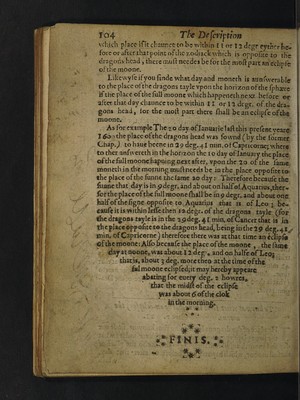 104 The Description
which place if it chance to be within 11 or 12 degr eyther be-
fore or after that point of the zodiack which is opposite to the
dragons head, there must needes be for the most part an eclipse
of the moone.
Likewyse if you finde what day and moneth is answerable
to the place of the dragons tayle upon the horizon of the sphære
If the place of the full moone which happeneth next before or
after that day chaunce to be within 11 or 12 degr. of the dra-
gons head, for the most part there shall be an eclipse of the
moone.
As for example The 20 day of Ianuarie last this present yeare
the place of the dragons head was found (by the former
Chap.) to haue beene in 29 deg. 41 min. of Capricorne; where
to ther answereth in the horizon the 10 day of Ianuary the place
of the full moone hapning next after, upon the 20 of the same
moneth in the morning must needs be in the place opposite to
the place of the sunne the same 20 day: Therefore because the
sunne that day is in 9 degr, and about on half of Aquarius, ther-
for the place of the full moone shall be in 9 deg, and about one
half of the signe opposite to Aquarius that is of Leo; be-
cause it is within lesse then 12 degr. of the dragons tayle (for
the dragons tayle is in the 29 deg. 41 min. of Cancer that is in
the place opposite to the dragons head, being in the 29 deg. 41
min. of Capricorne) therefore there was at that time an eclipse
of the moone: Also because the place of the moone, the same
day at noone, was about 12 deg, and on half of Leo;
that is, about 3 deg. more then at the time of the
ful moone eclipsed, it may hereby appeare
abating for every deg. 2 howers,
that the midst of the eclipse
was about 6 of the clok
in the morning.
FINIS.